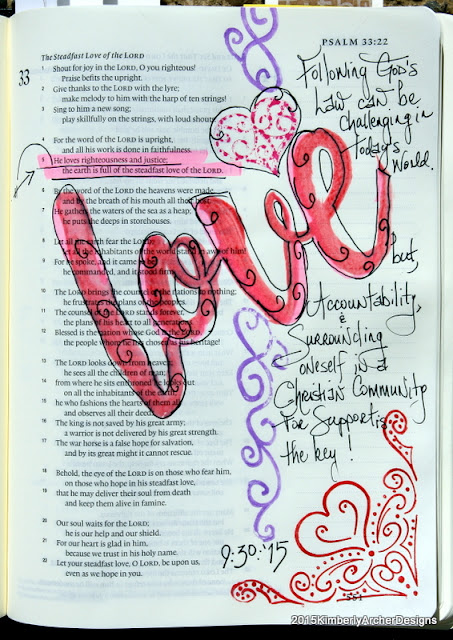 PSALM 33:22
The Steadfast Love of the LORD
33
1 Shout for joy in the LORD, O you righteous!
Praise befits the upright.
2 Give thanks to the LORD with the lyre;
make melody to him with the harp of ten strings!
3 Sing to him a new song;
play skillfully on the strings, with loud shouts
4 For the word of the LORD is upright,
and all his work is done in faithfulness.
5 He loves righteousness and justice;
the earth is full of the steadfast love of the LORD.
6 By the word of the LORD the heavens were made,
and by the breath of his mouth all their host.
7 He gathers the waters of the sea as a heap;
he puts the deeps in storehouses.
8 Let all the earth fear the LORD;
let all the inhabitants of the world stand in awe of him!
9 For he spoke, and it came to be;
he commanded, and it stood firm.
10 The LORD brings the counsel of the nations to nothing;
he frustrates the plans of the peoples.
11 The counsel of the LORD stands forever,
the plans of his heart to all generations.
12 Blessed is the nation whose God is the LORD,
the people whom he has chosen as his heritage!
13 The LORD looks down from heaven;
he sees all the children of man;
14 from where he sits enthroned he looks out
on all the inhabitants of the earth,
15 he who fashions the hearts of them all
and observes all their deeds.
16 The king is not saved by his great army;
a warrior is not delivered by his great strength.
17 The war horse is a false hope for salvation,
and by its great might it cannot rescue.
18 Behold, the eye of the LORD is on those who fear him,
on those who hope in his steadfast love,
19 that he may deliver their soul from death
and keep them alive in famine.
20 Our soul waits for the LORD;
he is our help and our shield.
21 For our heart is glad in him,
because we trust in his holy name.
22 Let your steadfast love, O LORD, be upon us,
even as we hope in you.
love
Following God's
Law can be
challenging in
today's
World.
but,
Accountability,
&
Surrounding
oneself in a
Christian Community
for Support is
the key!
9.30.'15
551
2015KimberlyArcherDesigns